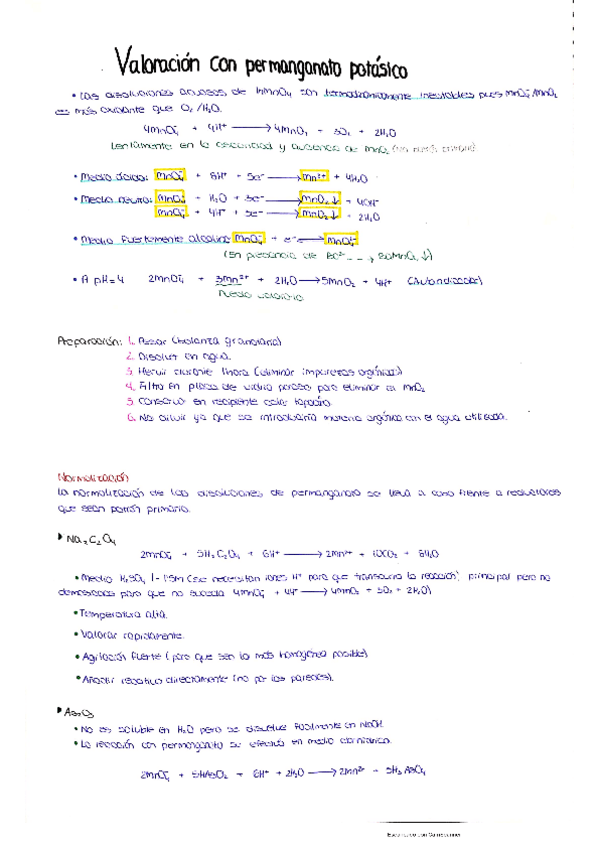 Valoración con permanganato potásico
• Las disoluciones acuosas de KMnO4 son termodinámicamente inestables pues MnO4⁻/MnO2
es más oxidante que O2/H2O.
4MnO4⁻ + 4H⁺ ⟶ 4MnO2 + 3O2 + 2H2O
Lentamente en la oscuridad y ausencia de MnO2
• Medio ácido: MnO4⁻ + 8H⁺ + 5e⁻ ⟶ Mn²⁺ + 4H2O
• Medio neutro: MnO4⁻ + H2O + 3e⁻ ⟶ MnO2↓ + 4OH⁻
MnO4⁻ + 4H⁺ + 3e⁻ ⟶ MnO2↓ + 2H2O
• Medio fuertemente alcalino: MnO4⁻ + e⁻ ⟶ MnO4²⁻
(En presencia de Ba²⁺ --→ BaMnO4↓)
• A pH=4 2MnO4⁻ + 3Mn²⁺ + 2H2O ⟶ 5MnO2 + 4H⁺
Preparación: 1. Pesar (balanza granataria)
2. Disolver en agua.
3. Hervir durante 1 hora (eliminar impurezas orgánicas)
4. Filtro en placa de vidrio poroso para eliminar el MnO2
5. Conservar en recipiente color topacio.
6. No diluir ya que se introduciría materia orgánica con el agua utilizada.
Normalización
La normalización de las disoluciones de permanganato se lleva a cabo frente a reductores
que sean patrón primario.
▸ Na2C2O4
2MnO4⁻ + 5H2C2O4 + 6H⁺ ⟶ 2Mn²⁺ + 10CO2 + 8H2O
• Medio H2SO4 1-1'5M (se necesitan iones H⁺ para que transcurra la reacción principal pero no
demasiados para que no suceda 4MnO4⁻ + 4H⁺ ⟶ 4MnO2 + 3O2 + 2H2O)
• Temperatura alta.
• Valorar rapidamente.
• Agitación fuerte (para que sea lo más homogénea posible)
• Añadir reactivo directamente (no por las paredes).
▸ As2O3
• No es soluble en H2O pero se disuelve facilmente en NaOH.
• La reacción con permanganato se efectúa en medio clorhídrico.
2MnO4⁻ + 5HAsO2 + 6H⁺ + 2H2O ⟶ 2Mn²⁺ + 5H3AsO4
Escaneado con CamScanner